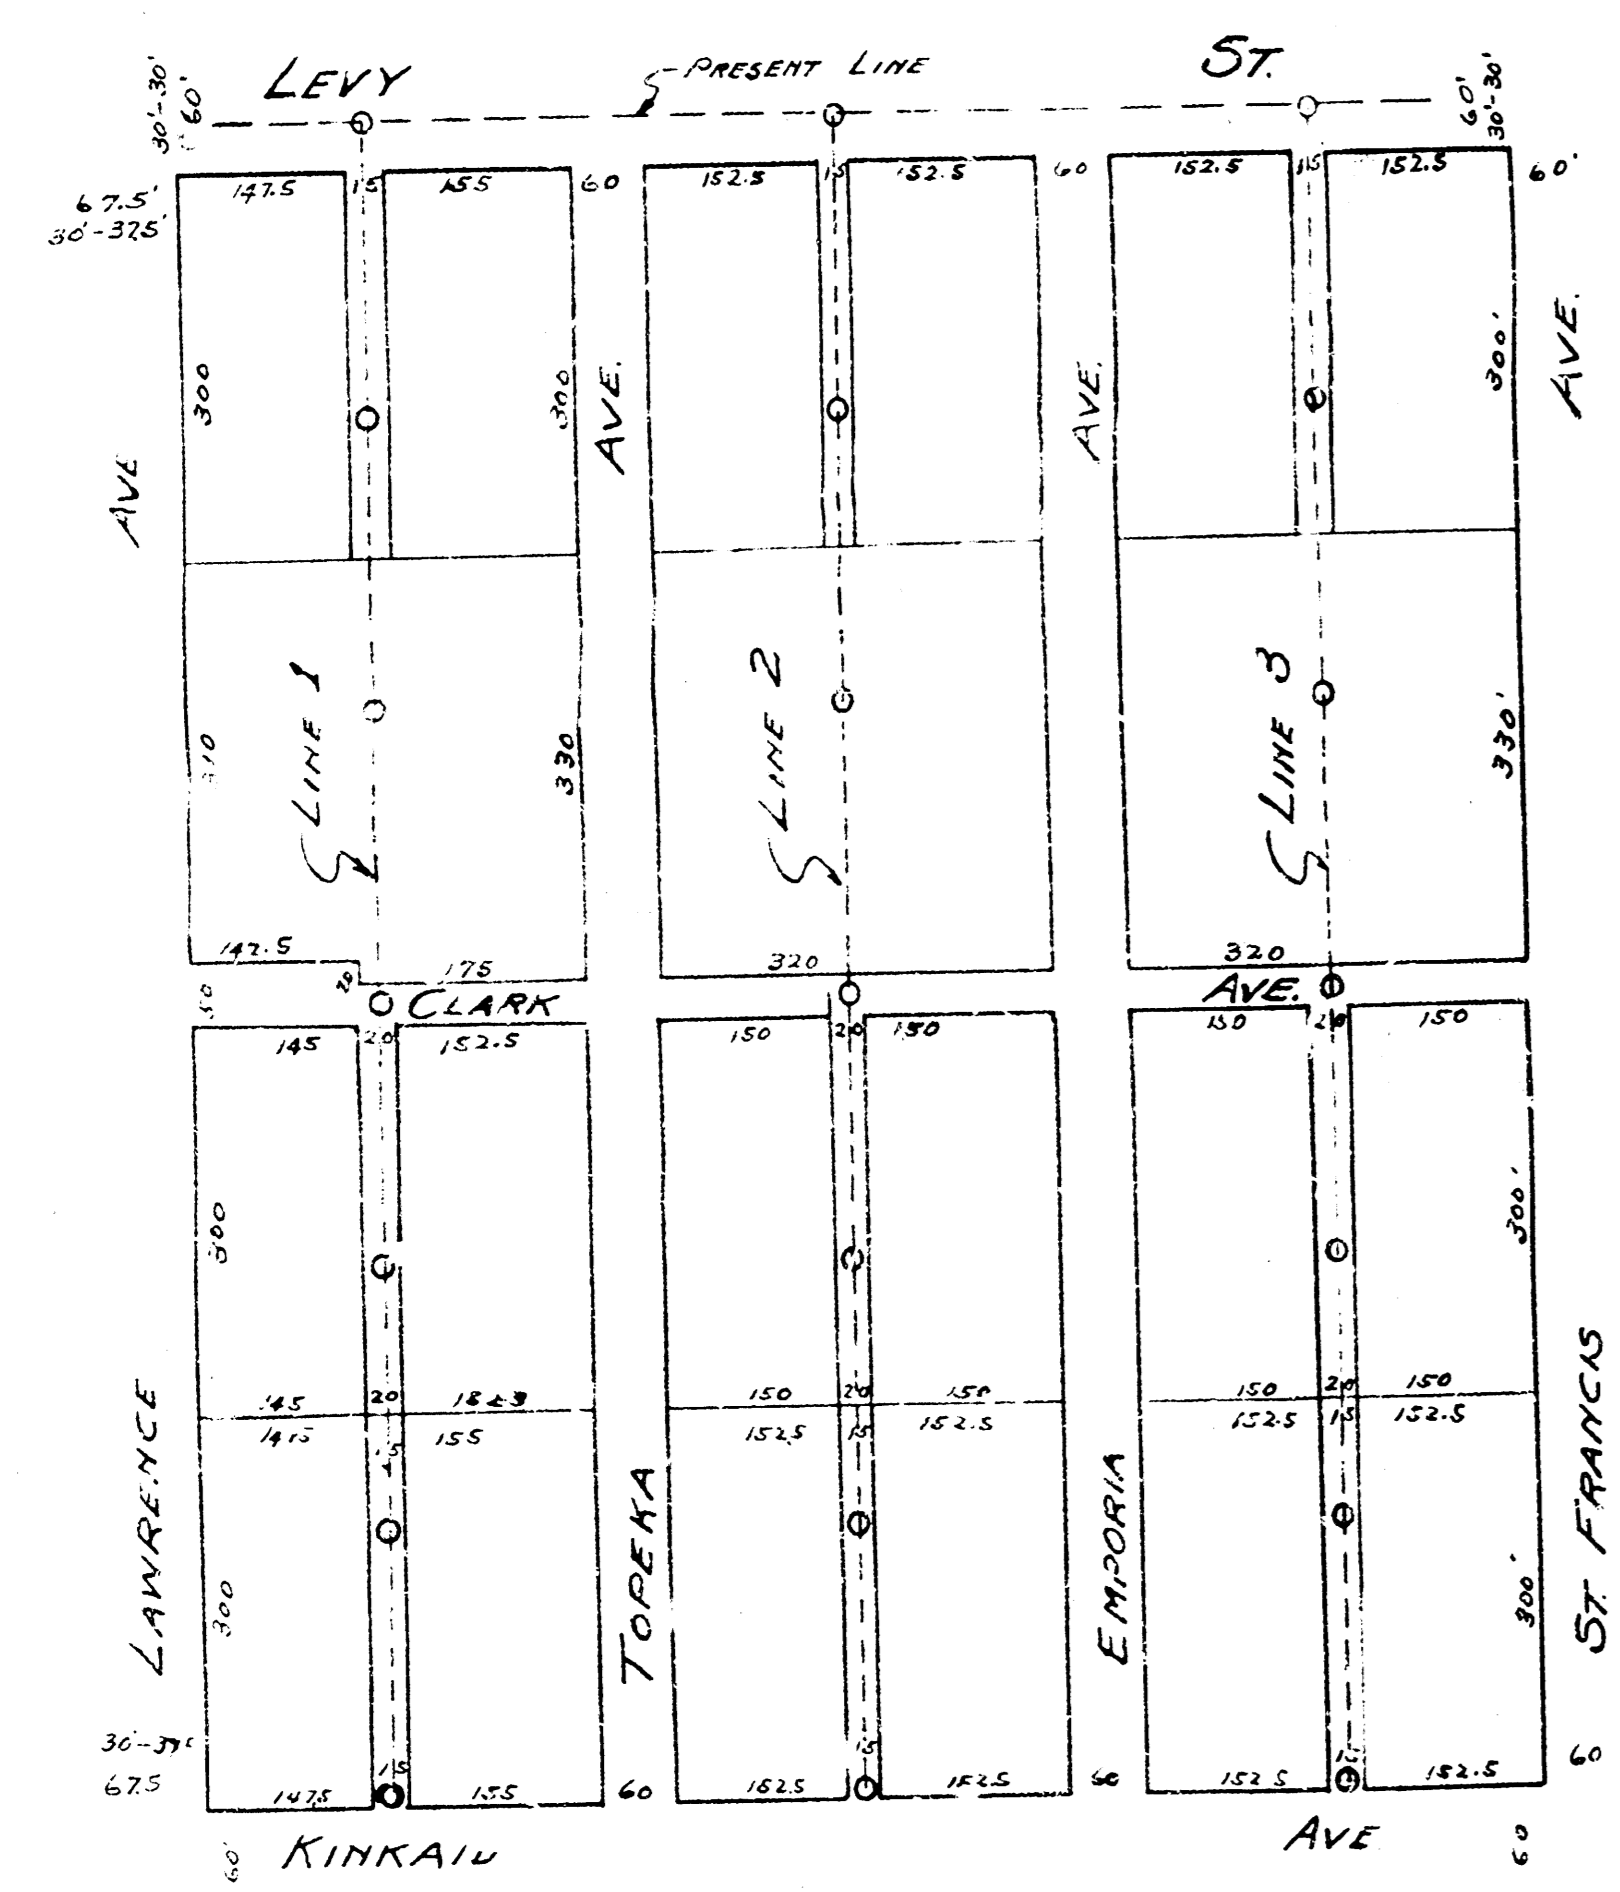 LEVY
PRESENT LINE
ST.
30'-30'
60'
60'
30'-30'
67.5'
30'-37.5'
147.5
15
155
60
152.5
15
152.5
60
152.5
15
152.5
60'
300
300
300'
AVE
AVE.
AVE.
AVE.
LINE 1
LINE 2
LINE 3
310
330
330'
142.5
20
175
320
320
50
CLARK
AVE.
145
20
152.5
150
20
150
150
20
150
300
300'
145
20
150
20
150
150
20
150
155
152.5
15
152.5
152.5
15
152.5
LAWRENCE
TOPEKA
EMPORIA
ST. FRANCIS
300
300'
67.5
147.5
15
155
60
152.5
15
152.5
60
152.5
152.5
60
60'
KINKAID
AVE
60